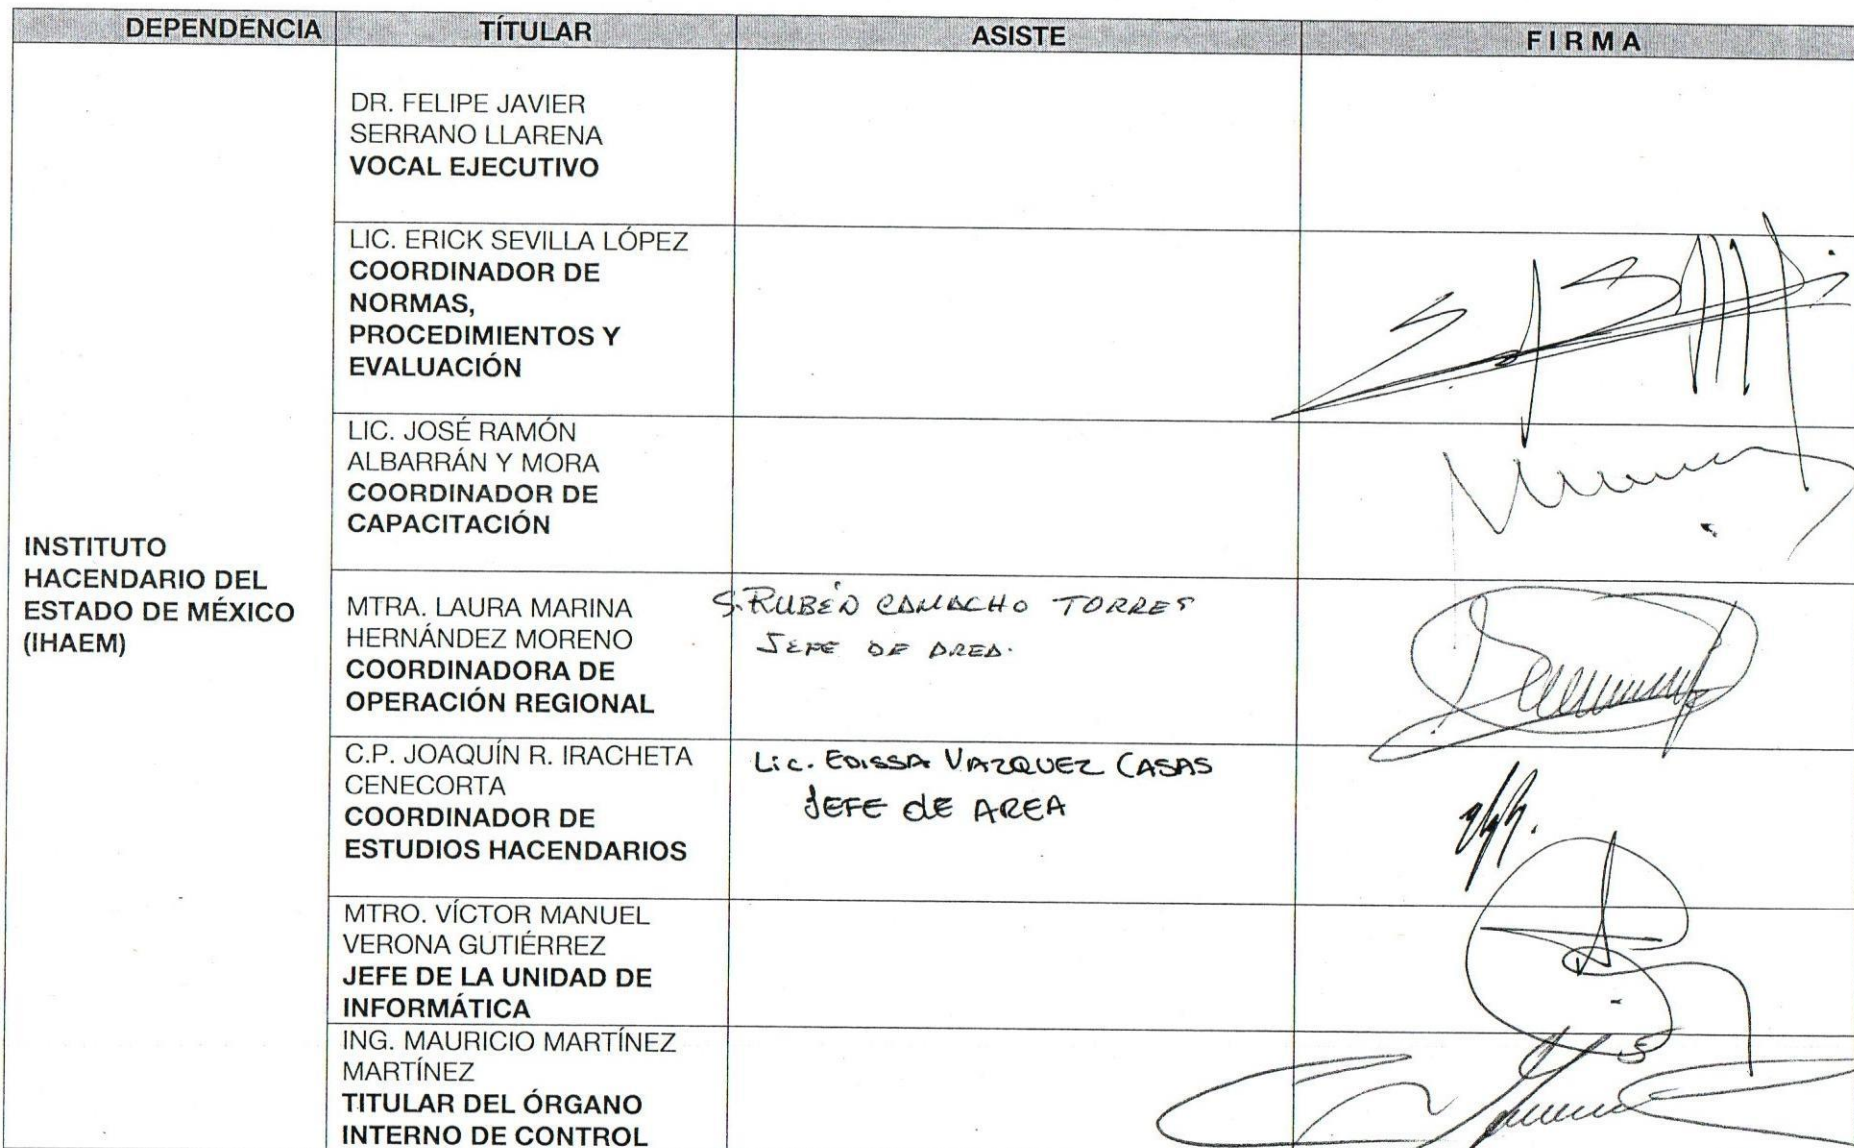 DEPENDENCIA TÍTULAR ASISTE FIRMA
INSTITUTO
HACENDARIO DEL
ESTADO DE MÉXICO
(IHAEM)
DR. FELIPE JAVIER
SERRANO LLARENA
VOCAL EJECUTIVO
LIC. ERICK SEVILLA LÓPEZ
COORDINADOR DE
NORMAS,
PROCEDIMIENTOS Y
EVALUACIÓN
LIC. JOSÉ RAMÓN
ALBARRÁN Y MORA
COORDINADOR DE
CAPACITACIÓN
MTRA. LAURA MARINA
HERNÁNDEZ MORENO
COORDINADORA DE
OPERACIÓN REGIONAL
S. RUBÉN CAMACHO TORRES
JEFE DE AREA.
C.P. JOAQUÍN R. IRACHETA
CENECORTA
COORDINADOR DE
ESTUDIOS HACENDARIOS
Lic. EDISSA VAZQUEZ CASAS
JEFE dE AREA
MTRO. VÍCTOR MANUEL
VERONA GUTIÉRREZ
JEFE DE LA UNIDAD DE
INFORMÁTICA
ING. MAURICIO MARTÍNEZ
MARTÍNEZ
TITULAR DEL ÓRGANO
INTERNO DE CONTROL